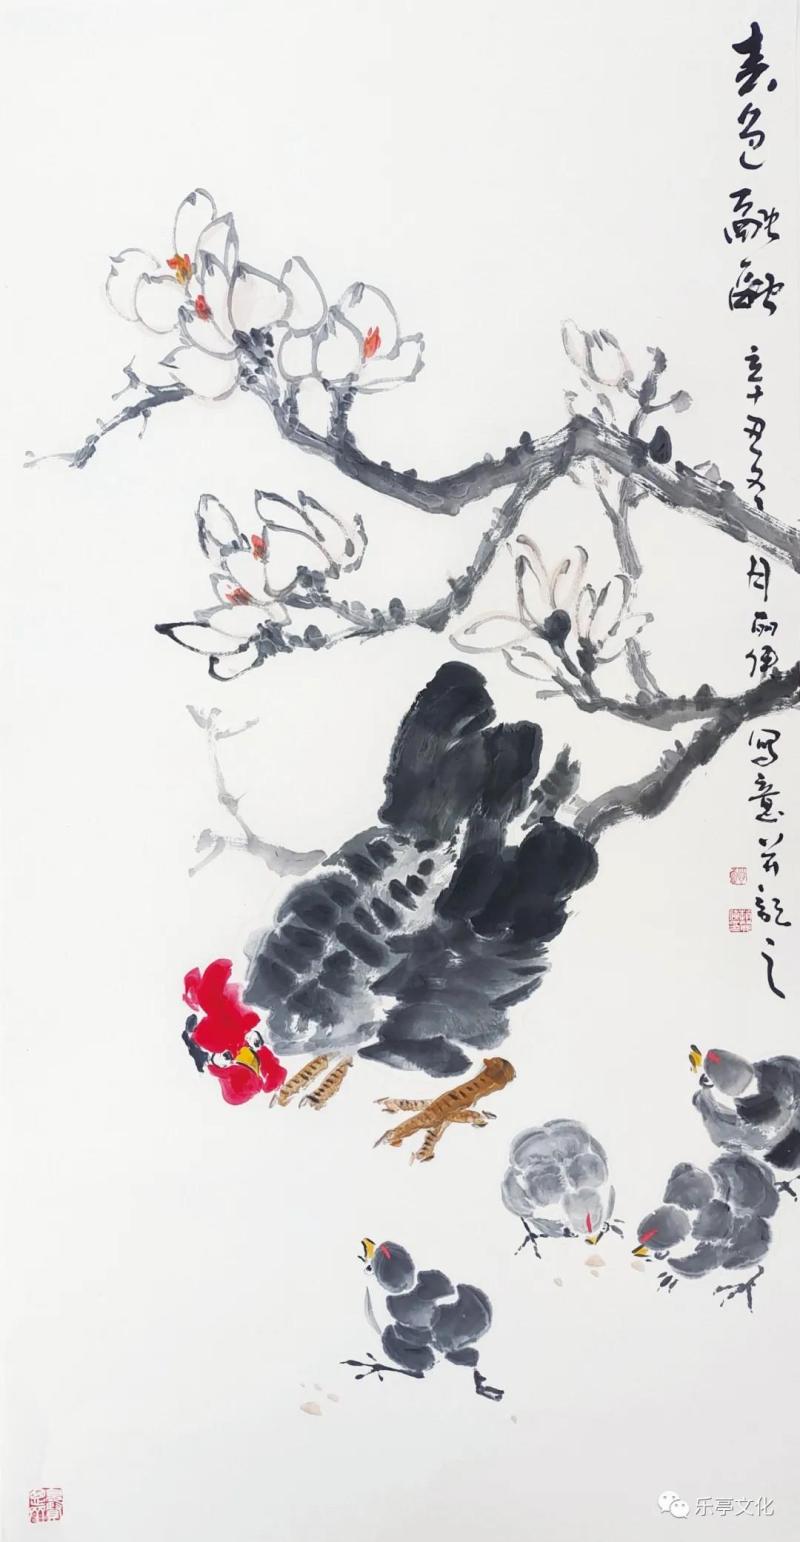 春色融融
辛丑冬月雨伊写意并记之
乐亭文化